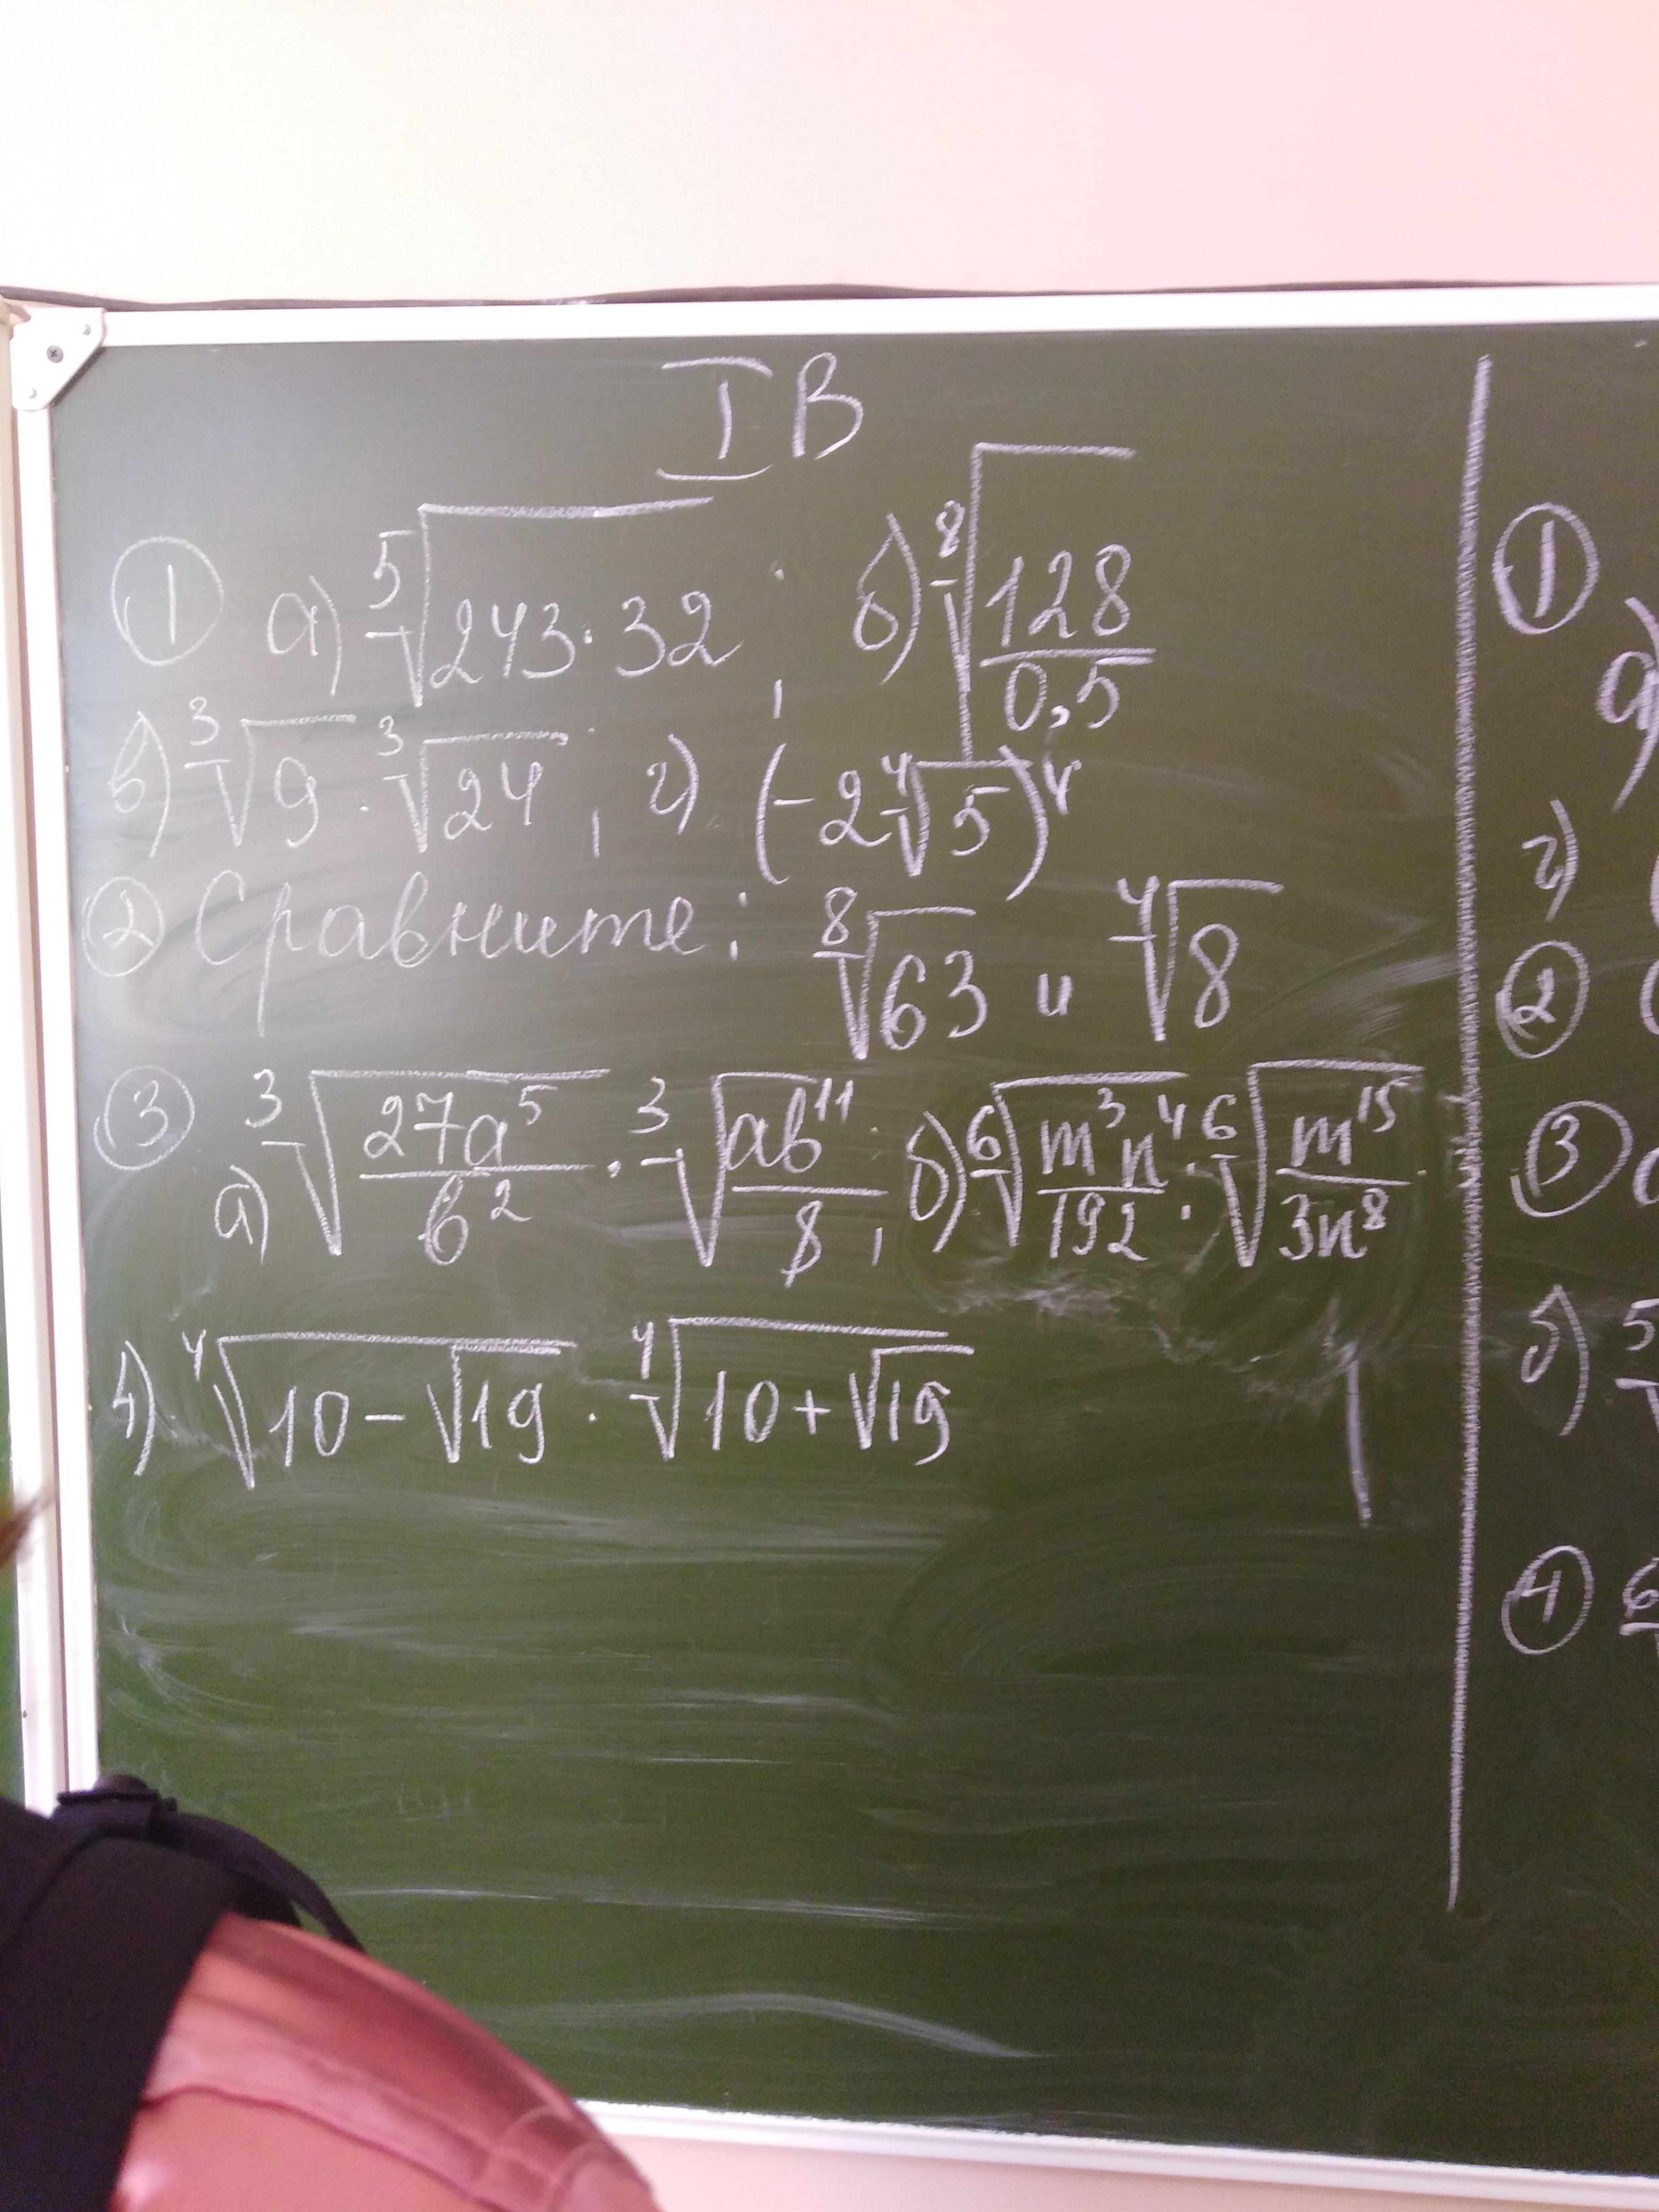 I В
① а) ⁵√(243·32); б) ⁸√(128/0,5)
в) ³√9 · ³√24; г) (-2⁴√5)⁴
② Сравните: ⁸√63 и ⁴√8
③ а) ³√(27a⁵/b²) · ³√(ab¹¹/8); б) ⁶√(m³n⁴/192) · ⁶√(m¹⁵/3n⁸)
4) ⁴√(10-√19) · ⁴√(10+√19)
①
а)
г) (
②
③
б) 5
④ 6